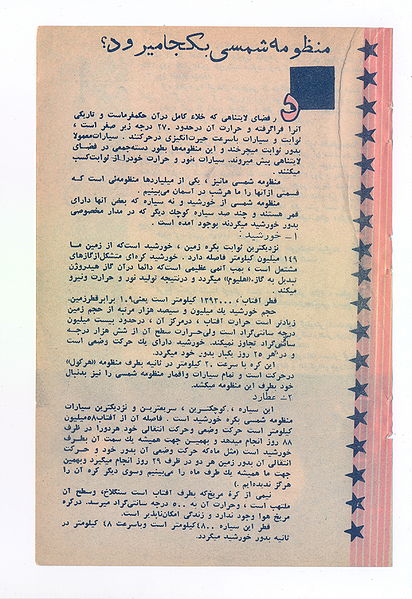 منظومه شمسی بکجا میرود؟
در فضای لایتناهی که خلاء کامل در آن حکمفرماست و تاریکی
آنرا فراگرفته و حرارت آن درحدود ۲۷۰ درجه زیر صفر است ،
ثوابت و سیارات باسرعت حیرت‌انگیزی درحرکتند . سیارات‌معمولا
بدور ثوابت میچرخند و این منظومه‌ها بطور دسته‌جمعی در فضای
لایتناهی پیش میروند. سیارات ،نور و حرارت خودرا از ثوابت‌کسب
میکنند .
منظومه شمسی مانیز ، یکی از میلیاردها منظومه‌ئی است که
قسمتی ازآنها را ما هرشب در آسمان می‌بینیم .
منظومه شمسی از خورشید و نه سیاره که بعضی آنها دارای
قمر هستند و چند صد سیاره کوچک دیگر که در مدار مخصوصی
بدور خورشید میگردند بوجود آمده است .
۱ـ خورشید :
نزدیکترین ثوابت بکره زمین ، خورشید است‌که از زمین ما
۱۴۹ میلیون کیلومتر فاصله دارد . خورشید کره‌ای متشکل‌ازگازهای
مشتعل است ، بمب اتمی عظیمی‌است‌که دائما درآن گاز هیدروژن
تبدیل به گاز «هلیوم» میگردد و درنتیجه تولید نور و حرارت ونیرو
میکند .
قطر آفتاب ، ۱۳۹۲۰۰۰ کیلومتر است یعنی۱۰۹ برابرقطرزمین.
حجم خورشید یك میلیون و سیصد هزار مرتبه از حجم زمین
زیادتر است حرارت آفتاب ، درمرکز آن ، درحدود بیست میلیون
درجه سانتی‌گراد است ولی‌حرارت سطح آن از شش هزار درجـه
سانتی‌گراد تجاوز نمیکند. خورشید دارای یك حرکت وضعی است
و در هر ۲۵ روز یکبار بدور خود میگردد.
این کره با سرعت ۲۰ کیلومتر در ثانیه بطرف منظومه «هرکول»
درحرکت است و تمام سیارات واقمار منظومه شمسی را نیز بدنبال
خود بطرف این منظومه میکشد.
۲ـ عطارد
این سیاره ، کوچکترین ، سریعترین و نزدیکترین سیارات
منظومه شمسی بکره خورشید است . فاصله آن از آفتاب۵۸میلیون
کیلومتر است حرکت وضعی وحرکت انتقالی خود هردورا در ظرف
۸۸ روز انجام میدهد و بهمین جهت همیشه یك سمت آن بطرف
خورشید است (مثل ماه‌که حرکت وضعی آن بدور خود و حرکت
انتقالی آن بدور زمین هر دو در ظرف ۲۹ روز انجام میگیرد وبهمین
جهت ما همیشه یك طرف ماه را می‌بینیم وسوی دیگر کره آن را
هرگز ندیده‌ایم .)
نیمی از کرهٔ مریخ‌که بطرف آفتاب است سنگلاخ، وسطح آن
ملتهب است ، وحرارت آن به ۵۰۰ درجه سانتی‌گراد میرسد. درکره
مریخ هوا وجود ندارد و زندگی امکان‌ناپذیر است.
قطر این سیاره ۴۸۰۰کیلومتر است وباسرعت ۴۸ کیلومتر در
ثانیه بدور خورشید میگردد.